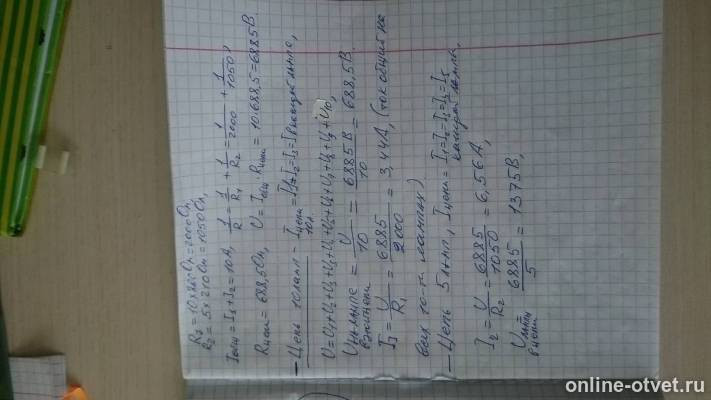 R₁ = 10×200 Ом = 2000 Ом,
R₂ = 5×210 Ом = 1050 Ом,
Iобщ = I₁ + I₂ = 10А, 1/R = 1/R₁ + 1/R₂ = 1/2000 + 1/1050,
Rцепи = 688,5 Ом, U = Iобщ · Rцепи = 10·688,5 = 6885 В.
— Цепь 10 ламп — Iцепи = I₁ = I₂ = I₃ =
10л
U = U₁ + U₂ + U₃ + U₄ + U₅ + U₆ + U₇ + U₈ + U₉ + U₁₀,
Uна лампе = U/10 = 6885В/10 = 688,5В.
в
I₁ = U/R₁ = 6885/2000 = 3,44А, (ток общий на
всех 10-ти лампах)
— Цепь 5 ламп, Iцепи = I₁ = I₂ = I₃ = I₄ = I₅
каждой лампе.
I₂ = U/R₂ = 6885/1050 = 6,56А,
U = 6885/5 = 1375В,
в цепи
online-otvet.ru